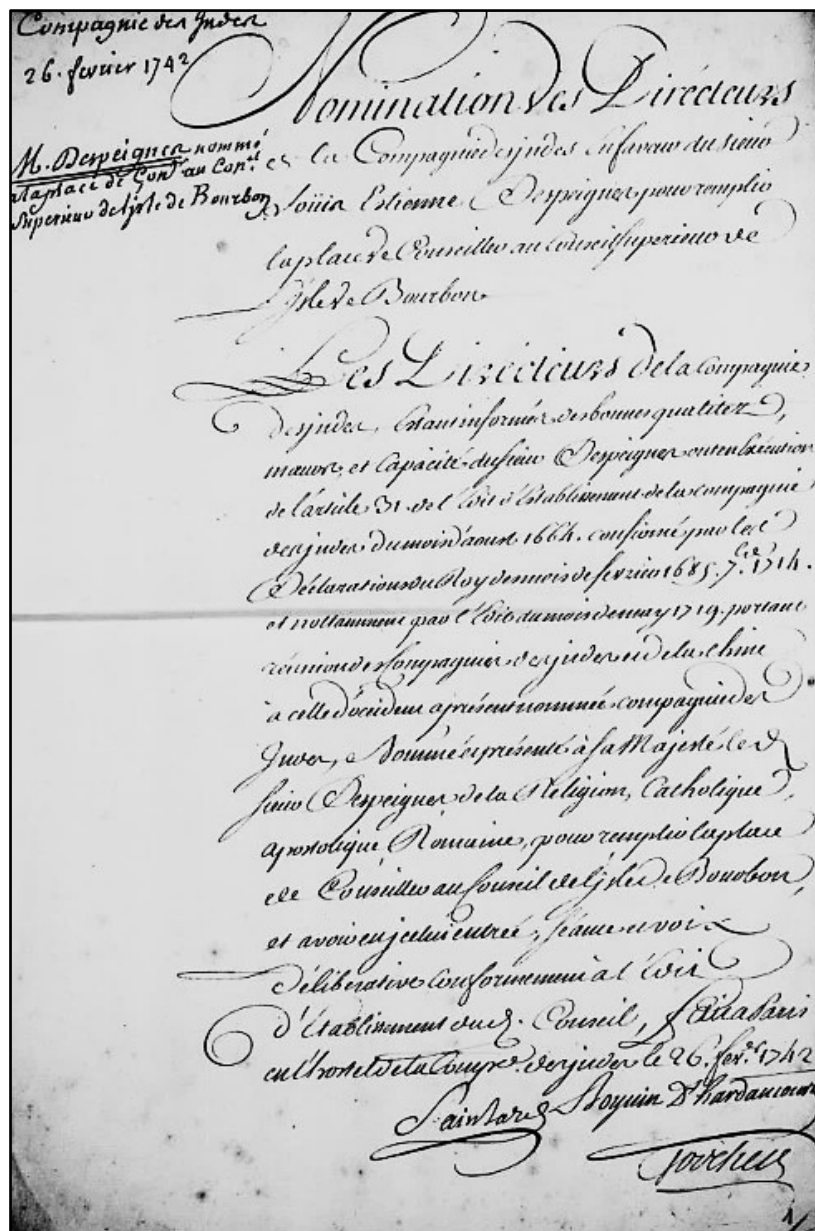 Compagnie des Indes
26. fevrier 1742
M. Despeignes nommé
a la place de Con.er au Con.el
Superieur de l'isle de Bourbon
Nomination des Directeurs
de la Compagnie des jndes en faveur du sieur
Loüis Estienne Despeignes pour remplir
la place de Conseiller au Conseil superieur de
l'Jsle de Bourbon
Les Directeurs de la Compagnie
des jndes, Estant informés des bonnes qualitez,
mœurs, et Capacité du sieur Despeignes ont en Exécution
de l'article 31. de l'Edit d'Etablissement de la compagnie
des jndes du mois d'aoust 1664. confirmé par les
Déclarations du Roy des mois de fevrier 1685. 7.bre 1714.
et nottamment par l'Edit du mois de may 1719. portant
réunion des Compagnies des jndes et de la Chine
a celle d'occident aprésent nommée compagnie des
Jndes, Nommé et présenté à sa Majesté led.
sieur Despeignes de la Religion, Catholique,
apostolique Romaine, pour remplir la place
de Conseiller au Conseil de l'jsle de Bourbon,
et avoir en jcelui entrée, séance et voix
Déliberative conformement à l'Edit
d'Etablissement dud. Conseil, fait a Paris
en l'hostel de la Comp.e des jndes le 26. fev.er 1742
Saintard D'hardancourt